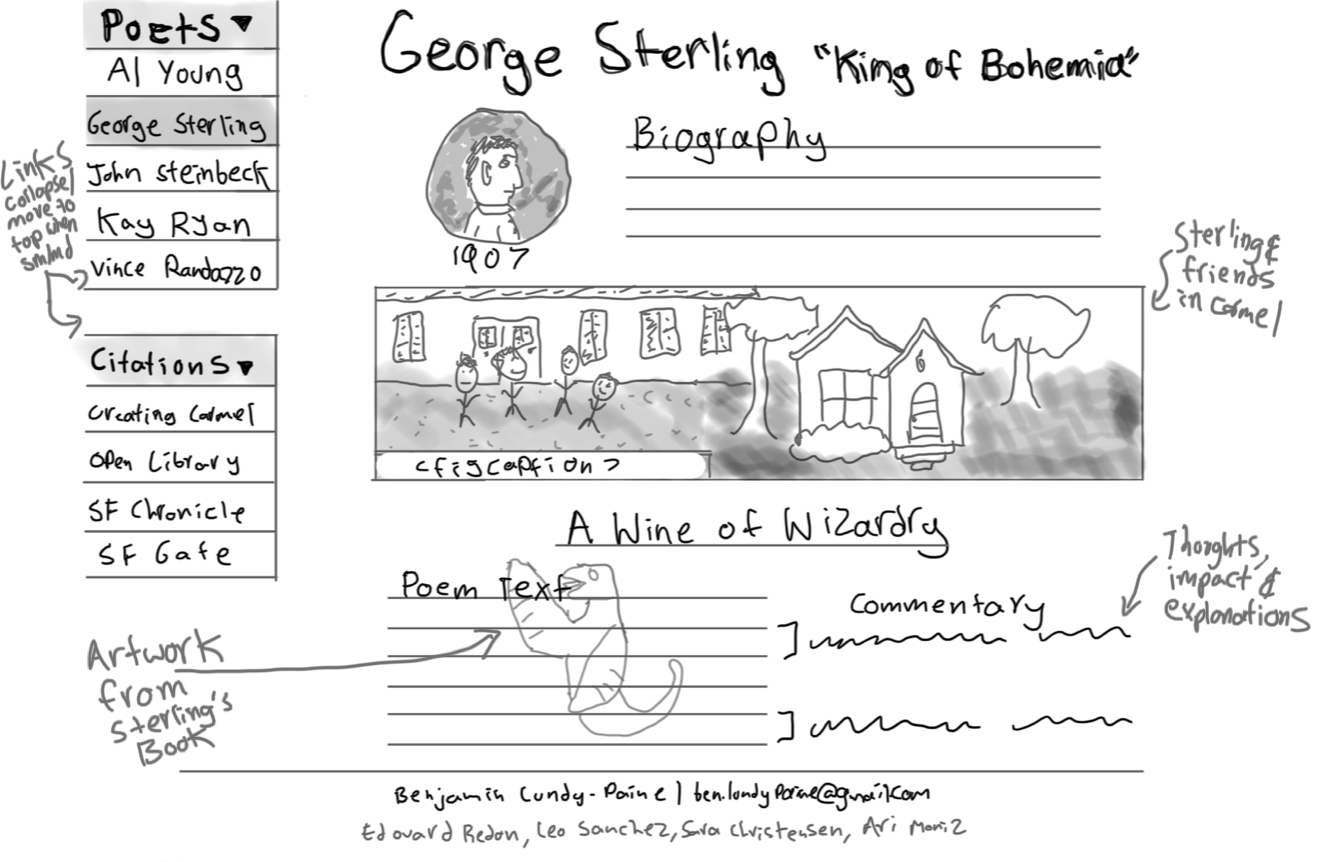 Poets ▼
Al Young
George Sterling
John Steinbeck
Kay Ryan
Vince Randazzo
Links
collapse/
move to
top when
sm/md
Citations ▼
Creating Carmel
Open Library
SF Chronicle
SF Gate
George Sterling "King of Bohemia"
Biography
1907
Sterling &
friends
in Carmel
<figcaption>
A Wine of Wizardry
Poem Text
Commentary
Thoughts,
impact &
explanations
Artwork
from
Sterling's
Book
Benjamin Lundy-Paine | ben.lundypaine@gmail.com
Edouard Redon, Leo Sanchez, Sara Christensen, Ari Moniz